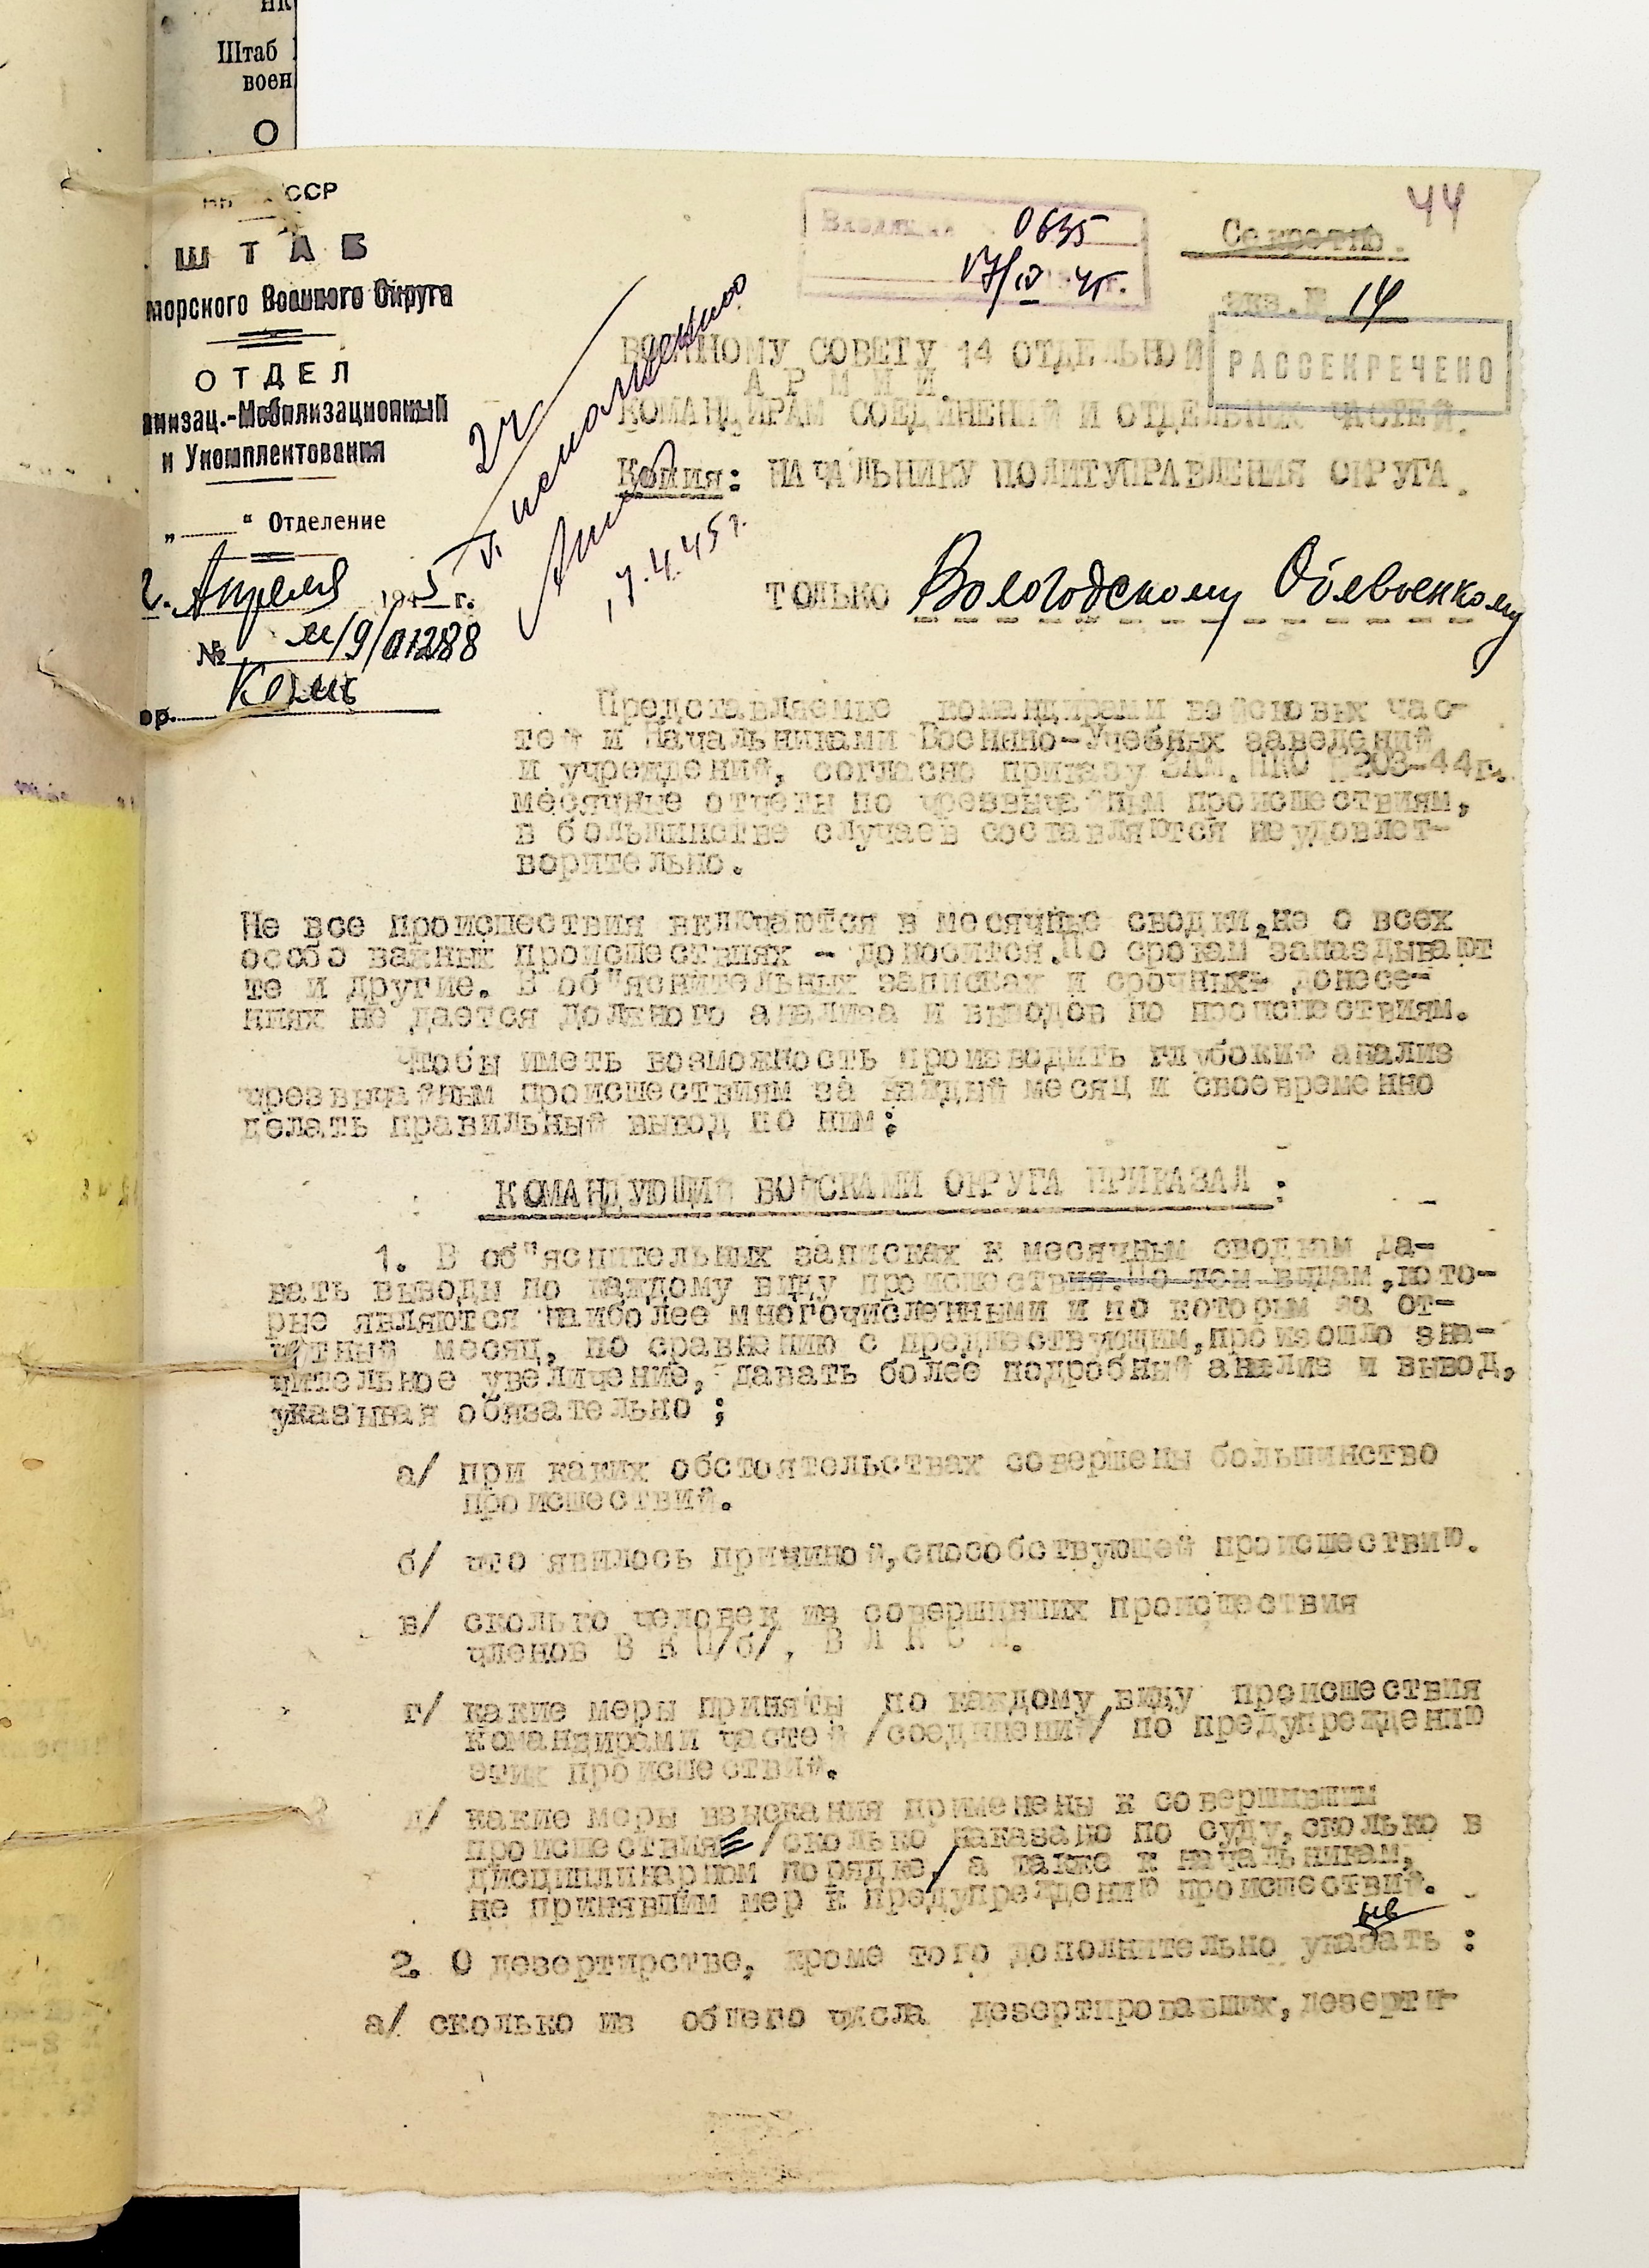 Штаб
воен
О
СССР
ШТАБ
морского Военного Округа
ОТДЕЛ
анизац.-Мобилизационный
и Укомплектования
„ “ Отделение
Апреля 1945 г.
№ м/9/01288
гор. Кемь
44
Входящий 0635
17/IV 45г.
Секретно.
экз.№ 14
РАССЕКРЕЧЕНО
2ч
К исполнению
17.4.45г.
ВОЕННОМУ СОВЕТУ 14 ОТДЕЛЬНОЙ
АРМИИ.
КОМАНДИРАМ СОЕДИНЕНИЙ И ОТДЕЛЬНЫХ ЧАСТЕЙ.
Копия: НАЧАЛЬНИКУ ПОЛИТУПРАВЛЕНИЯ ОКРУГА.
ТОЛЬКО Вологодскому Облвоенкому
Представляемые командирами войсковых час-
тей и Начальниками Военно-Учебных заведений
и учреждений, согласно приказу ЗАМ. НКО №203-44г.
месячные отчеты по чрезвычайным происшествиям,
в большинстве случаев составляются неудовлет-
ворительно.
Не все происшествия включаются в месячные сводки, не о всех
особо важных происшествиях - доносится. По срокам запаздывают
те и другие. В об"яснительных записках и срочных донесе-
ниях не дается должного анализа и выводов по происшествиям.
Чтобы иметь возможность производить глубокий анализ
чрезвычайным происшествиям за каждый месяц и своевременно
делать правильный вывод по ним:
КОМАНДУЮЩИЙ ВОЙСКАМИ ОКРУГА ПРИКАЗАЛ :
1. В об"яснительных записках к месячным сводкам да-
вать выводы по каждому виду происшествия. По тем видам, кото-
рые являются наиболее многочисленными и по которым за от-
четный месяц, по сравнению с предшествующим, произошло зна-
чительное увеличение, давать более подробный анализ и вывод,
указывая обязательно ;
а/ при каких обстоятельствах совершены большинство
происшествий.
б/ что явилось причиной, способствующей происшествию.
в/ сколько человек из совершивших происшествия
членов В К П/б/, В Л К С М.
г/ какие меры приняты по каждому виду происшествия
командирами частей /соединений/ по предупреждению
этих происшествий.
д/ какие меры взыскания применены к совершившим
происшествия /сколько наказано по суду, сколько в
дисциплинарном порядке/ а также к начальникам,
не принявшим мер к предупреждению происшествий.
ыв
2. О дезертирстве, кроме того дополнительно указать :
а/ сколько из общего числа дезертировавших, дезерти-